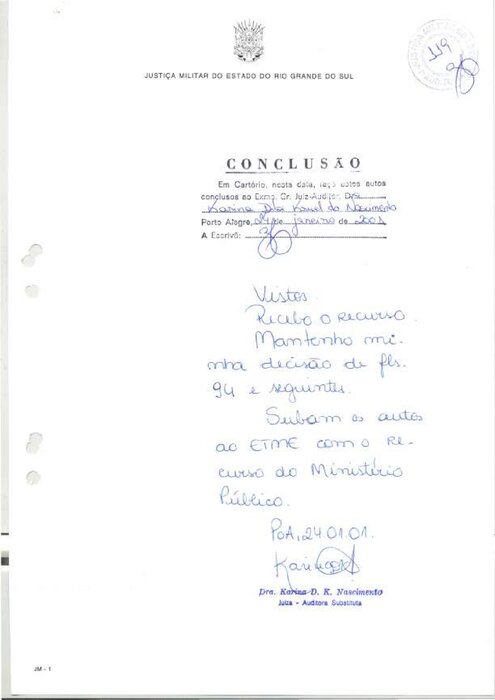 119
JUSTIÇA MILITAR DO ESTADO DO RIO GRANDE DO SUL
CONCLUSÃO
Em Cartório, nesta data, faço estes autos
conclusos ao Exmo. Sr. Juiz-Auditor. Dra.
Karina Dibi Kruel do Nascimento
Porto Alegre, 24 de janeiro de 2001
A Escrivã:
Vistos.
Recebo o recurso.
Mantenho mi-
nha decisão de fls.
94 e seguintes.
Subam os autos
ao ETME com o re-
curso do Ministério
Público.
PoA, 24.01.01.
Dra. Karina D. K. Nascimento
Juíza - Auditora Substituta
JM - 1